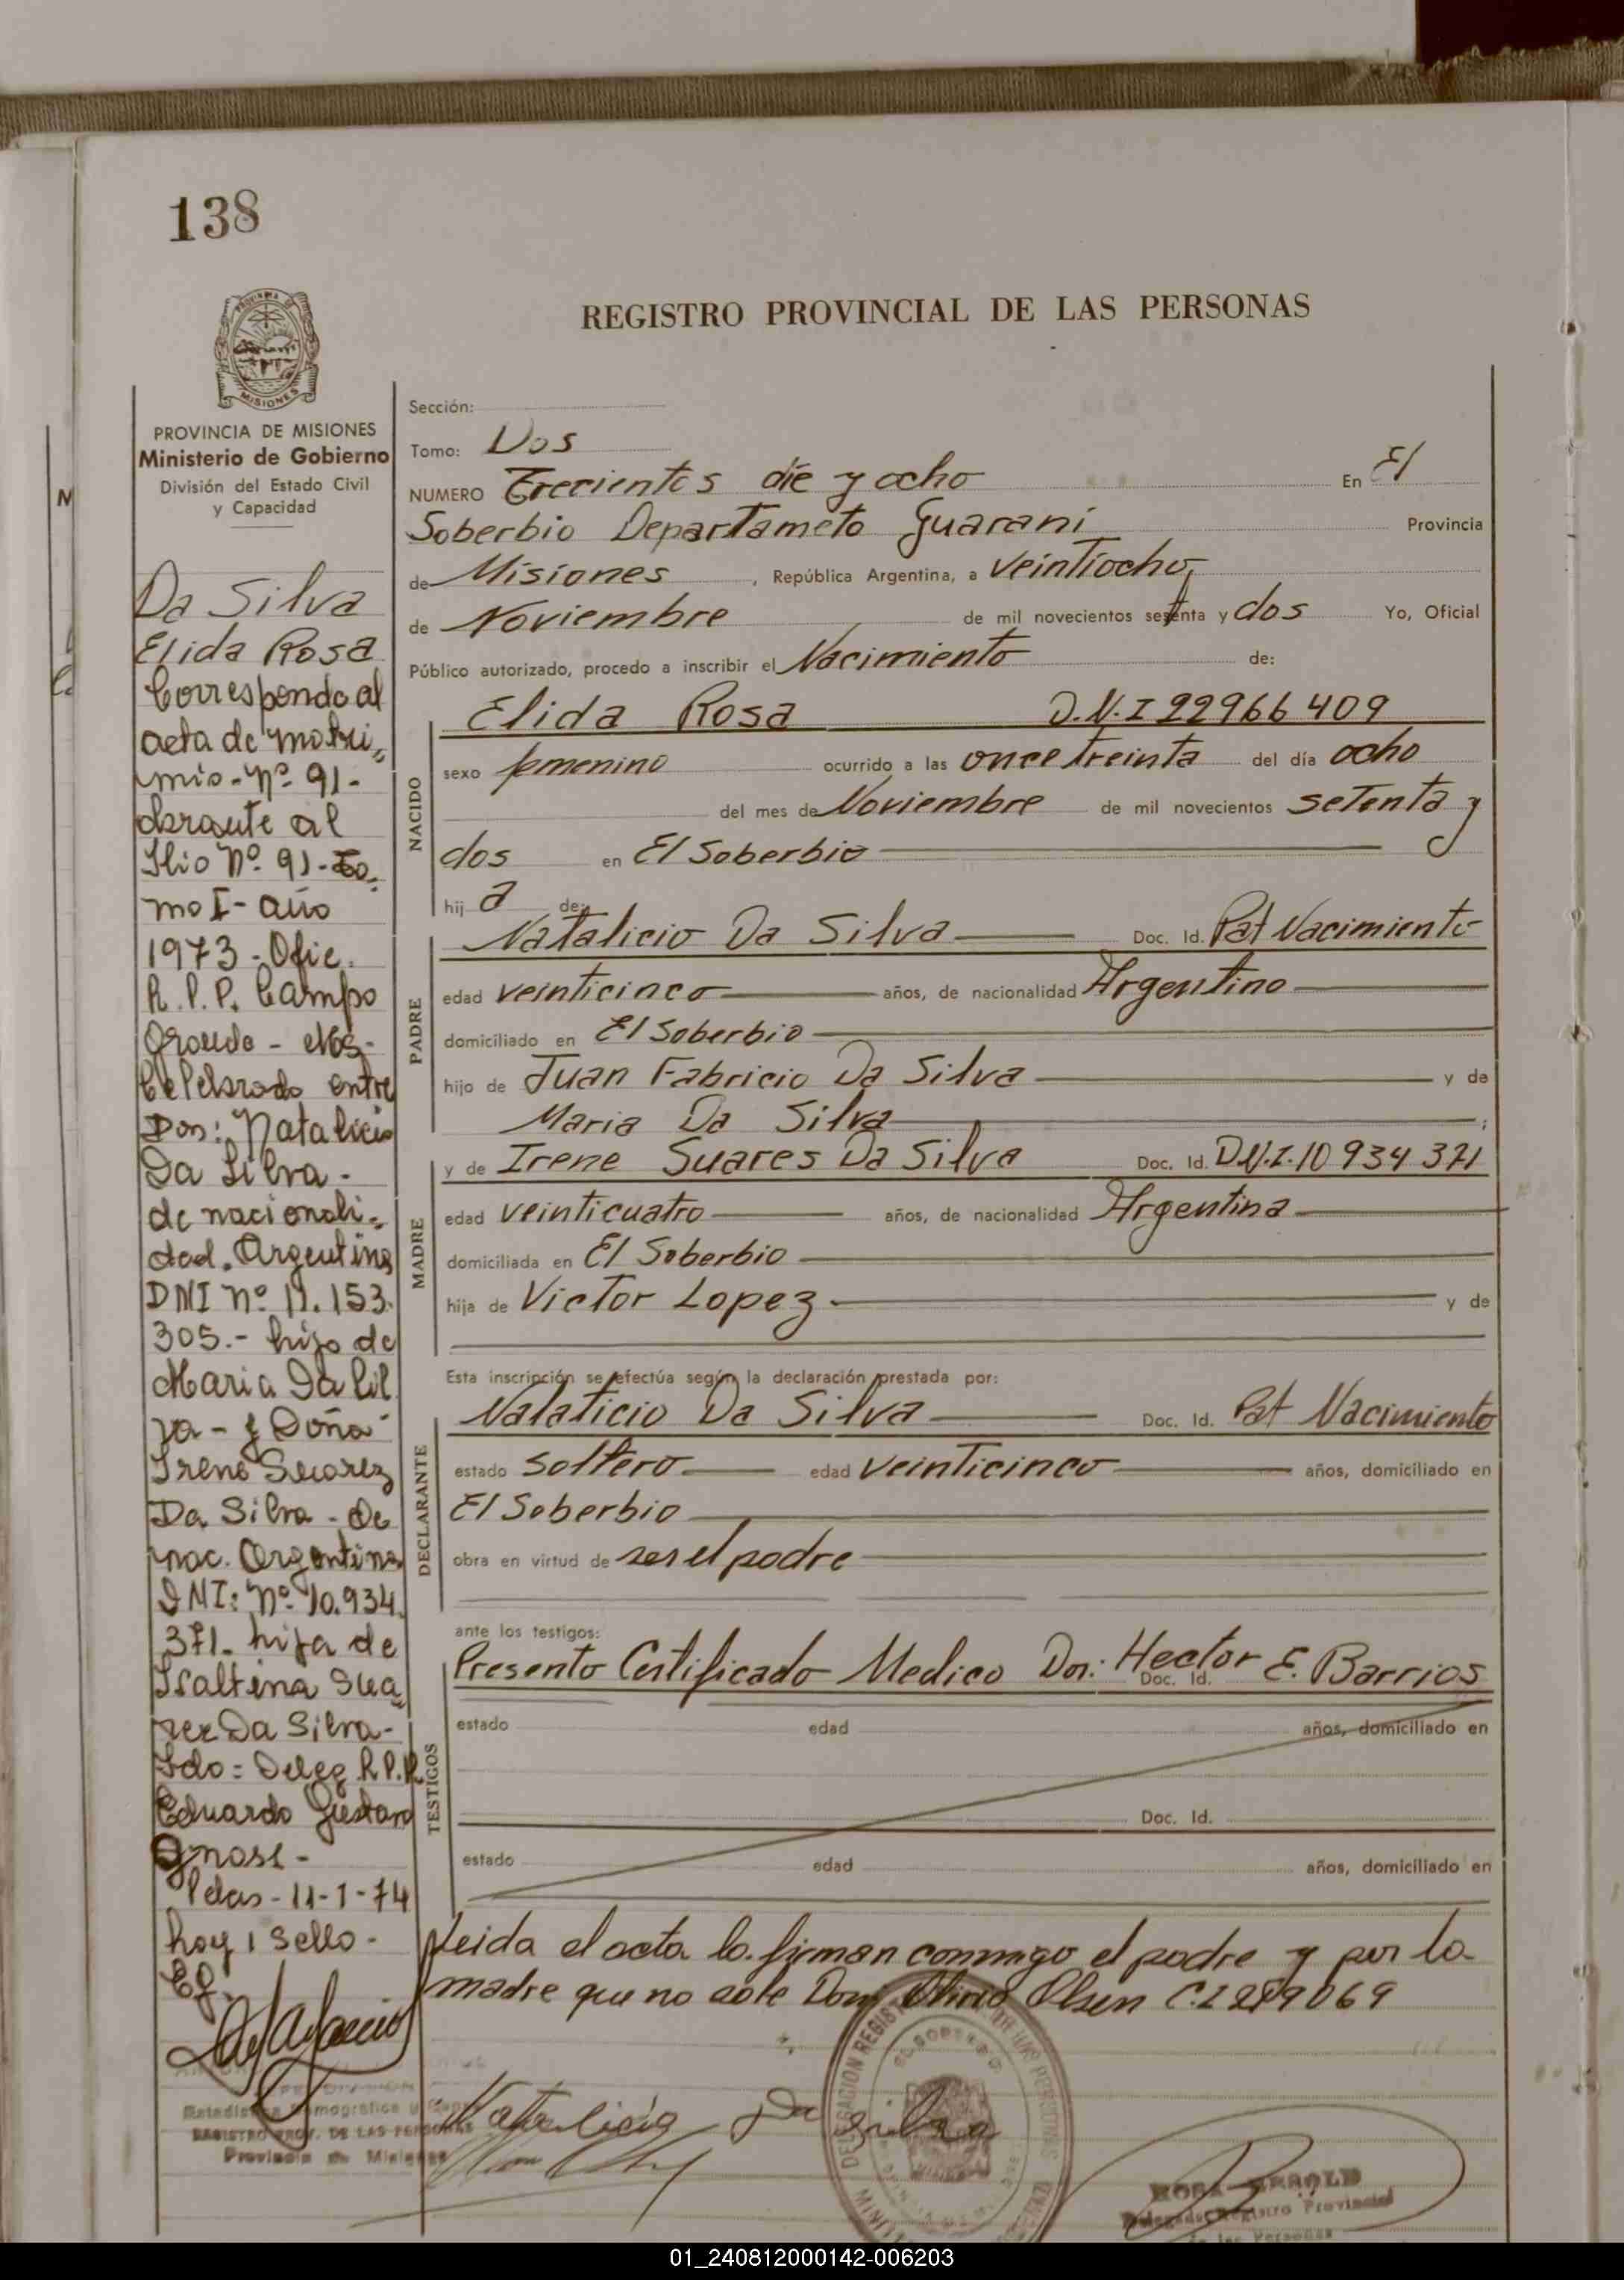 138
REGISTRO PROVINCIAL DE LAS PERSONAS
MISIONES
PROVINCIA DE MISIONES
Ministerio de Gobierno
División del Estado Civil
y Capacidad
Da Silva
Elida Rosa
Corresponde al
acta de matri=
mio - Nº 91 -
obrante al
flio Nº 91 - To=
mo I - año
1973 - Ofic.
R.P.P. Campo
Grande - Mos -
Celebrado entre
Don: Natalicio
Da Silva -
de nacionali=
dad. Argentina
DNI nº 11.153.
305.- hijo de
Maria Da Sil
va - y Doña
Irene Suarez
Da Silva - de
nac. Argentina
DNI: Nº 10.934.
371- hija de
Isaltina Sua=
rez Da Silva -
Fdo: Deleg R.P.P.
Eduardo Gustavo
Pdas - 11-1-74
hay 1 sello -
Provincia de Misiones
Sección:
Tomo: Dos
NUMERO Trecientos die y ocho En El
Soberbio Departameto Guarani Provincia
de Misiones, República Argentina, a veintiocho
de Noviembre de mil novecientos setenta y dos Yo, Oficial
Público autorizado, procedo a inscribir el Nacimiento de:
NACIDO
Elida Rosa D.N.I 22966409
sexo femenino ocurrido a las once treinta del día ocho
del mes de Noviembre de mil novecientos setenta y
dos en El Soberbio
hij a de:
PADRE
Natalicio Da Silva Doc. Id. Pat Nacimiento
edad veinticinco años, de nacionalidad Argentino
domiciliado en El Soberbio
hijo de Juan Fabricio Da Silva y de
Maria Da Silva ;
MADRE
y de Irene Suares Da Silva Doc. Id. D.N.I. 10 934 371
edad veinticuatro años, de nacionalidad Argentina
domiciliada en El Soberbio
hija de Victor Lopez y de
Esta inscripción se efectúa según la declaración prestada por:
DECLARANTE
Nalaticio Da Silva Doc. Id. Pat Nacimiento
estado soltero edad veinticinco años, domiciliado en
El Soberbio
obra en virtud de ser el padre
ante los testigos:
TESTIGOS
Presento Certificado Medico Dor: Hector E. Barrios
Doc. Id.
estado edad años, domiciliado en
Doc. Id.
estado edad años, domiciliado en
Leida el acta la firman conmigo el padre y por la
madre que no sabe Don Olsen
Natalicio Da Silva
01_240812000142-006203